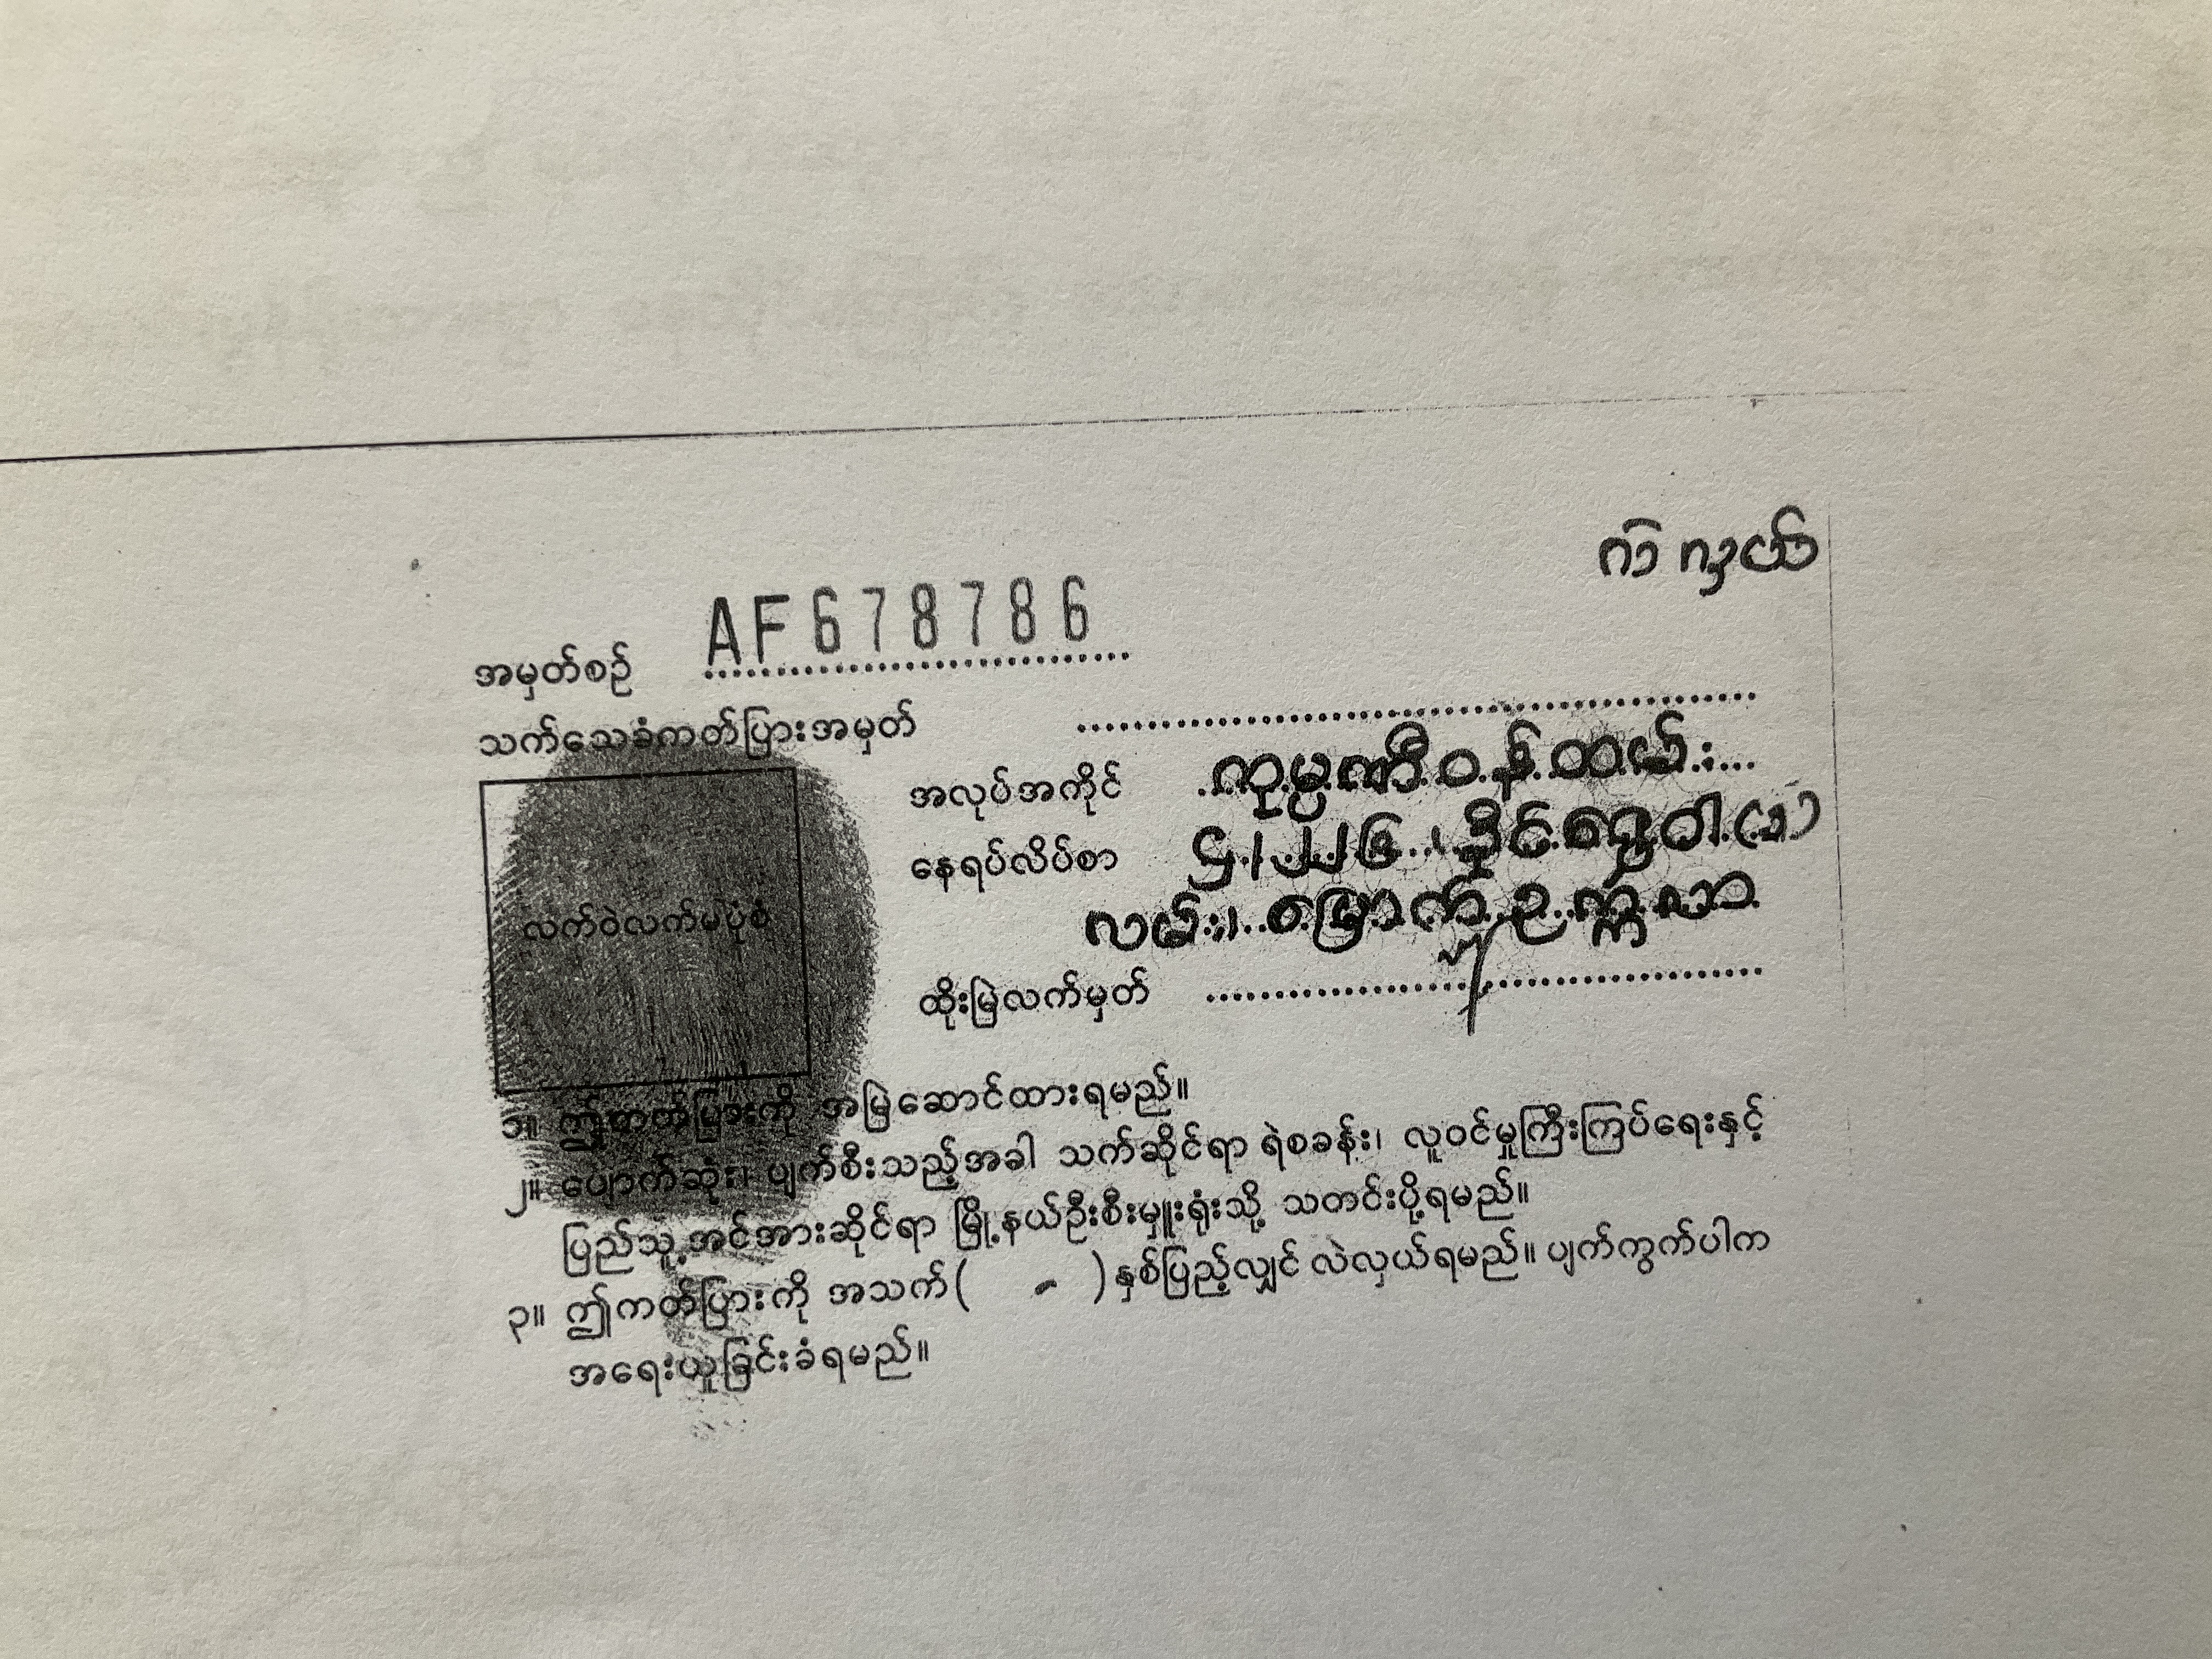 ကဲ လှယ်
အမှတ်စဉ် AF678786
သက်သေခံကတ်ပြားအမှတ်
အလုပ်အကိုင် ကုမ္ပဏီဝန်ထမ်း
နေရပ်လိပ်စာ ၄၂၂၆၊ ဒိုင်ဇွေဝါ(၁)
လမ်း၊ မြောက်ဥက္ကလာ
ထိုးမြဲလက်မှတ်
လက်ဝဲလက်မပုံစံ
၁။ ဤကတ်ပြားကို အမြဲဆောင်ထားရမည်။
၂။ ပျောက်ဆုံး၊ ပျက်စီးသည့်အခါ သက်ဆိုင်ရာ ရဲစခန်း၊ လူဝင်မှုကြီးကြပ်ရေးနှင့်
ပြည်သူ့အင်အားဆိုင်ရာ မြို့နယ်ဦးစီးမှူးရုံးသို့ သတင်းပို့ရမည်။
၃။ ဤကတ်ပြားကို အသက်( - )နှစ်ပြည့်လျှင် လဲလှယ်ရမည်။ ပျက်ကွက်ပါက
အရေးယူခြင်းခံရမည်။